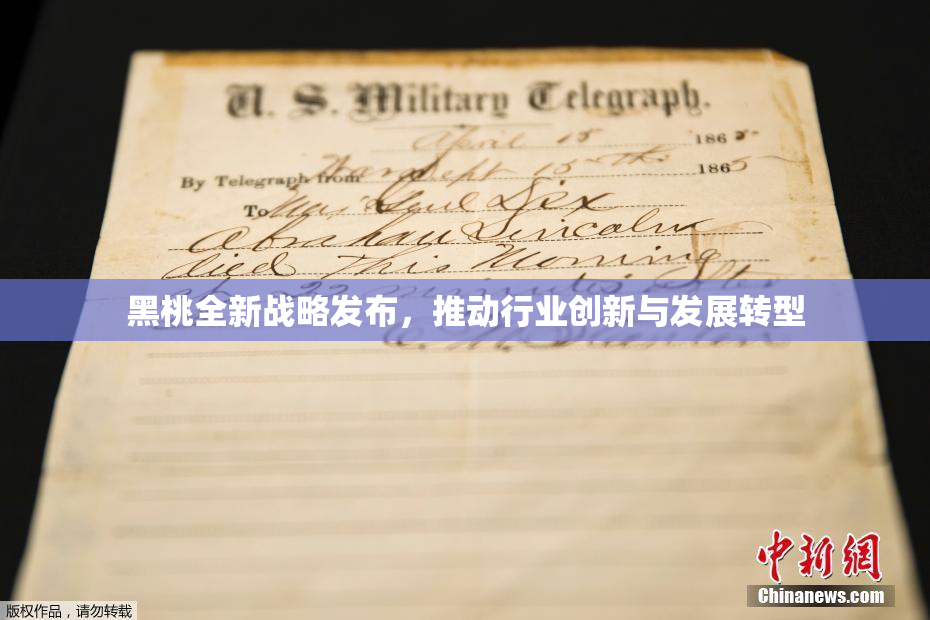 U. S. Military Telegraph.
April 15 1865
By Telegraph from War Dept 15th 1865
To Maj Genl Dix
Abraham Lincoln
died This Morning
at 22 minutes after
黑桃全新战略发布，推动行业创新与发展转型
E. M. Stanton
中新網
Chinanews.com
版权作品，请勿转载